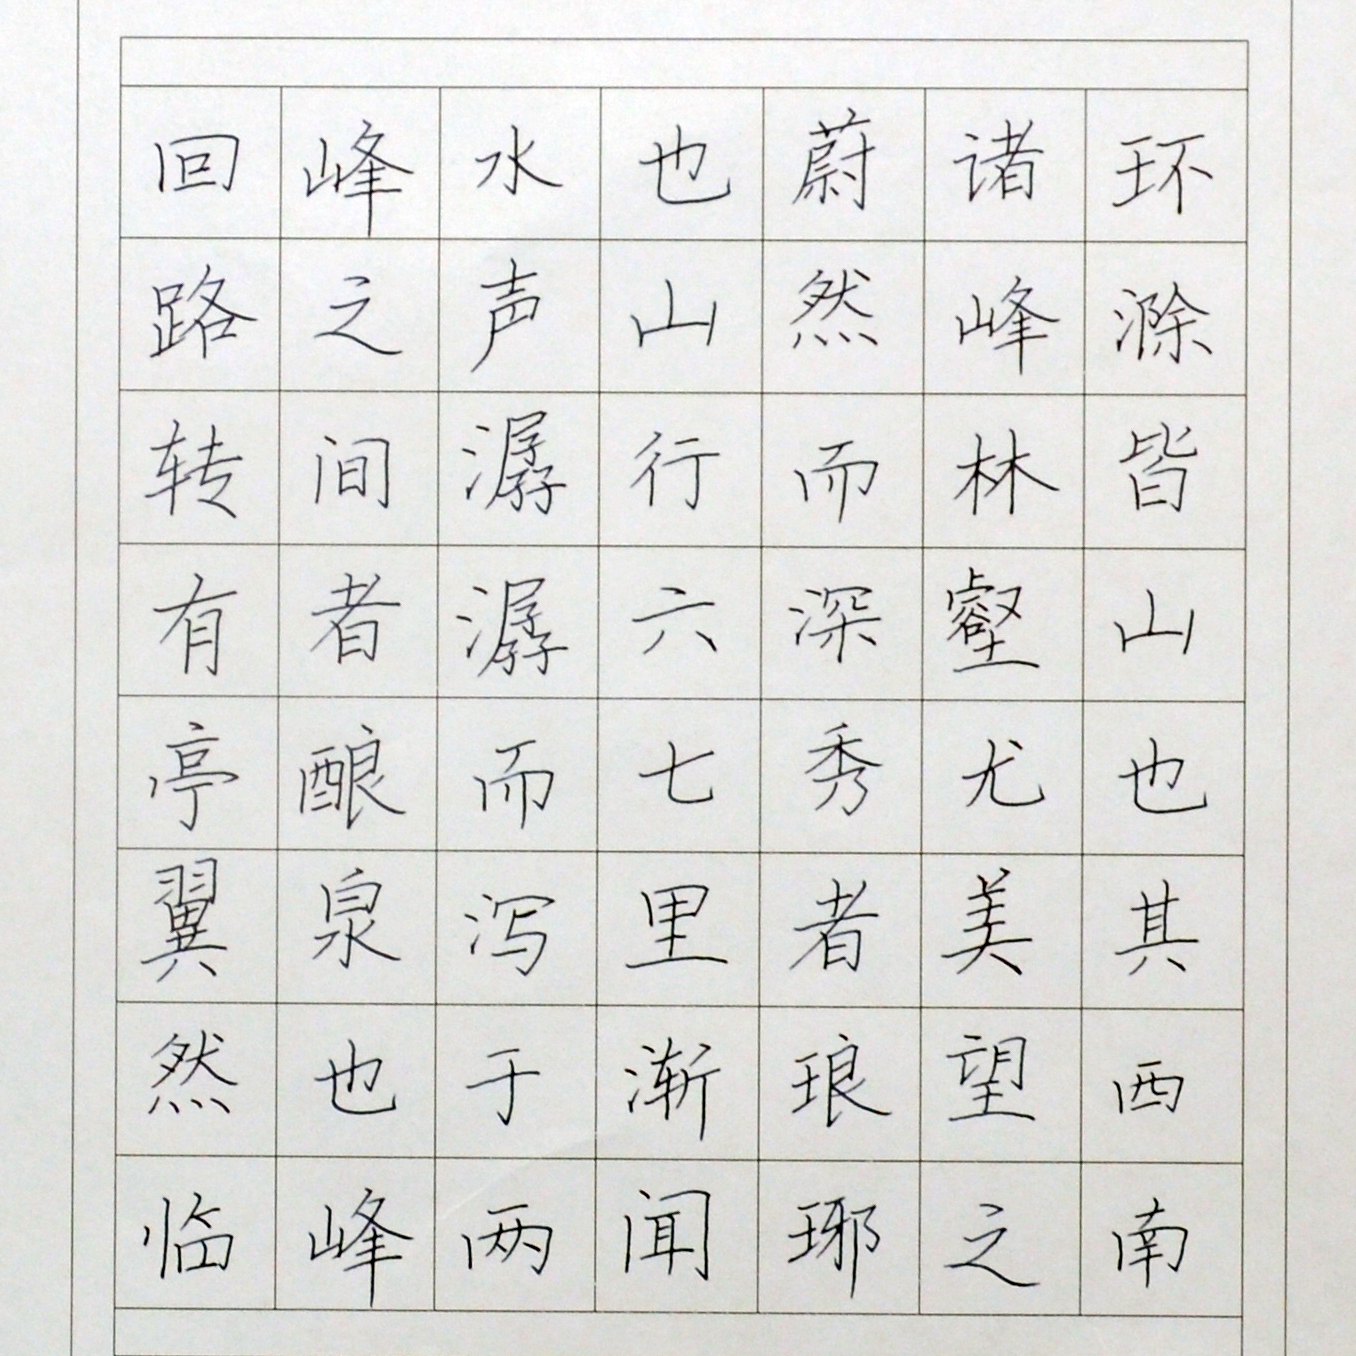 环滁皆山也其西南
诸峰林壑尤美望之
蔚然而深秀者琅琊
也山行六七里渐闻
水声潺潺而泻于两
峰之间者酿泉也峰
回路转有亭翼然临